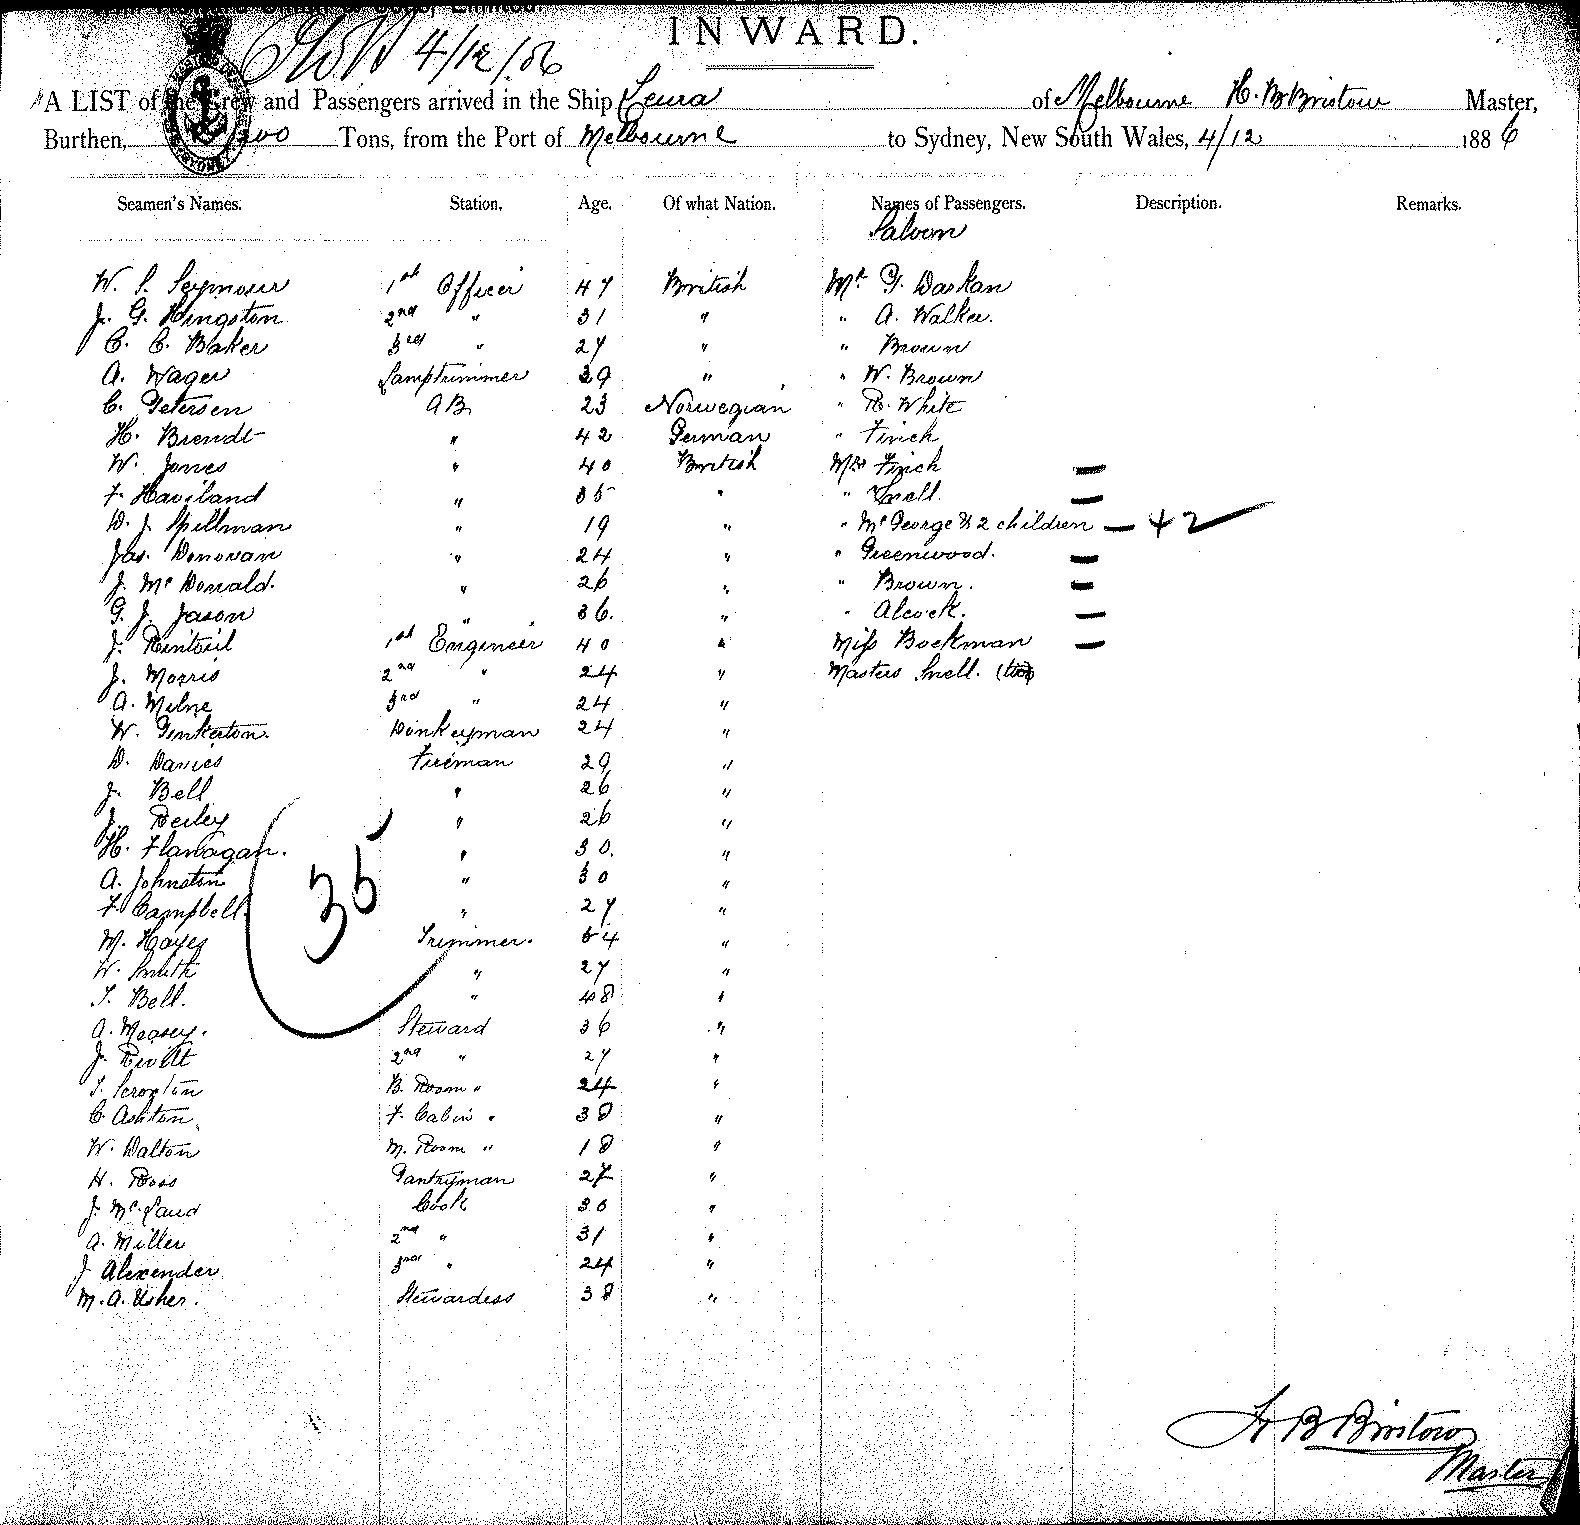 INWARD.
4/12/86
A LIST of the Crew and Passengers arrived in the Ship Leura of Melbourne H. B. Bristow Master,
Burthen, Tons, from the Port of Melbourne to Sydney, New South Wales, 4/12 1886
Seamen's Names. Station. Age. Of what Nation. Names of Passengers. Description. Remarks.
Saloon
W. S. Seymour 1st Officer 47 British Mr. G. Daskan
J. G. Kingston 2nd " 31 " " A. Walker.
C. C. Baker 3rd " 27 " " Brown
A. Wager Lamptrimmer 29 " " W. Brown
C. Petersen AB. 23 Norwegian " R. White
H. Brendt " 42 German " Finch
W. Jones " 40 British Mrs Finch —
F. Haviland " 35 " " Snell. —
D. J. Spillman " 19 " " McGeorge & 2 children — + 2
Jas. Donovan " 24 " " Greenwood. —
J. Mc Donald. " 26 " " Brown. —
G. J. Jason " 36. " " Alcock. —
J. Rintoil 1st Engineer 40 " Miss Bockman —
J. Morris 2nd " 24 " Masters Snell. (two)
A. Milne 3rd " 24 "
W. Pinkerton. Donkeyman 24 "
D. Davies Fireman 29 "
J. Bell " 26 "
J. Reiley " 26 "
H. Flanagan. " 30. "
A. Johnston " 30 "
F. Campbell. " 27 "
35
M. Hayes Trimmer. 54 "
W. Smith " 27 "
T. Bell. " 48 "
A. Measey. Steward 36 "
J. Rivitt 2nd " 27 "
T. Scropton B. Room " 24 "
C. Ashton. F. Cabin " 38 "
W. Walton M. Room " 18 "
H. Ross Pantryman 27 "
J. Mc. Laud Cook 30 "
A. Miller 2nd " 31 "
J Alexender 3rd " 24 "
M. A. Usher. Stewardess 38 "
H B Bristow
Master